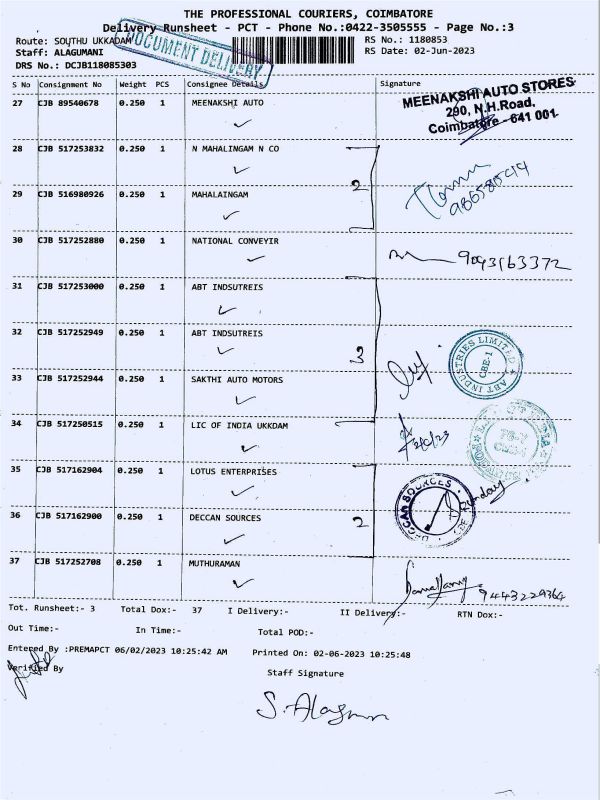 THE PROFESSIONAL COURIERS, COIMBATORE
Delivery Runsheet - PCT - Phone No.:0422-3505555 - Page No.:3
Route: SOUTHU UKKADAM
RS No.: 1180853
Staff: ALAGUMANI
RS Date: 02-Jun-2023
DRS No.: DCJB118085303
DOCUMENT DELIVERY
S No Consignment No Weight PCS Consignee Details Signature
27 CJB 89540678 0.250 1 MEENAKSHI AUTO
MEENAKSHI AUTO STORES
290, N.H.Road,
Coimbatore - 641 001.
28 CJB 517253832 0.250 1 N MAHALINGAM N CO
2
29 CJB 516980926 0.250 1 MAHALAINGAM
30 CJB 517252880 0.250 1 NATIONAL CONVEYIR
9043163372
31 CJB 517253000 0.250 1 ABT INDSUTREIS
32 CJB 517252949 0.250 1 ABT INDSUTREIS
3
ABT INDUSTRIES LIMITED
CBE-1
33 CJB 517252944 0.250 1 SAKTHI AUTO MOTORS
34 CJB 517250515 0.250 1 LIC OF INDIA UKKDAM
35 CJB 517162904 0.250 1 LOTUS ENTERPRISES
36 CJB 517162900 0.250 1 DECCAN SOURCES
2
DECCAN SOURCES
37 CJB 517252708 0.250 1 MUTHURAMAN
9443229364
Tot. Runsheet:- 3 Total Dox:- 37 I Delivery:- II Delivery:- RTN Dox:-
Out Time:- In Time:- Total POD:-
Entered By :PREMAPCT 06/02/2023 10:25:42 AM Printed On: 02-06-2023 10:25:48
Verified By
Staff Signature
S. Alagumani